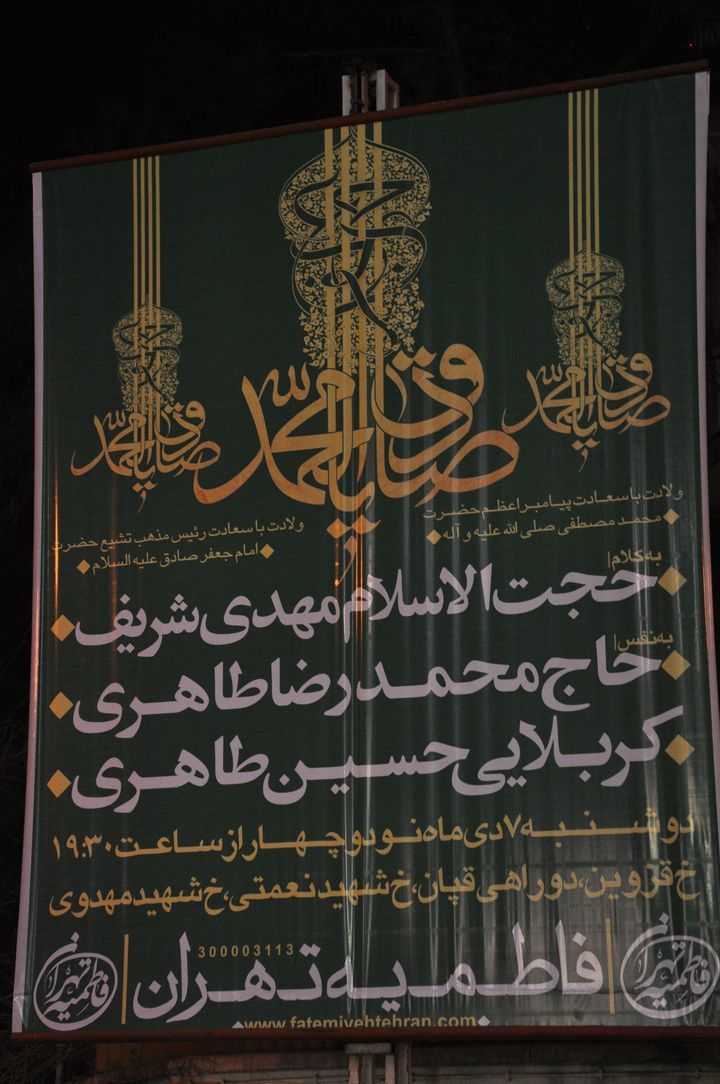 یا صادق آل محمد
یا صادق آل محمد
یا صادق آل محمد
ولادت با سعادت پیامبر اعظم حضرت
محمد مصطفی صلی الله علیه و آله
ولادت با سعادت رئیس مذهب تشیع حضرت
امام جعفر صادق علیه السلام
به کلام |
حجت الاسلام مهدی شریف
به نفس |
حاج محمدرضا طاهری
کربلایی حسین طاهری
دوشنبه ۷ دی ماه نود و چهار از ساعت ۱۹:۳۰
خ قزوین، دوراهی قپان، خ شهید نعمتی، خ شهید مهدوی
فاطمیه تهران
300003113
فاطمیه تهران
فاطمیه تهران
www.fatemiyehtehran.com